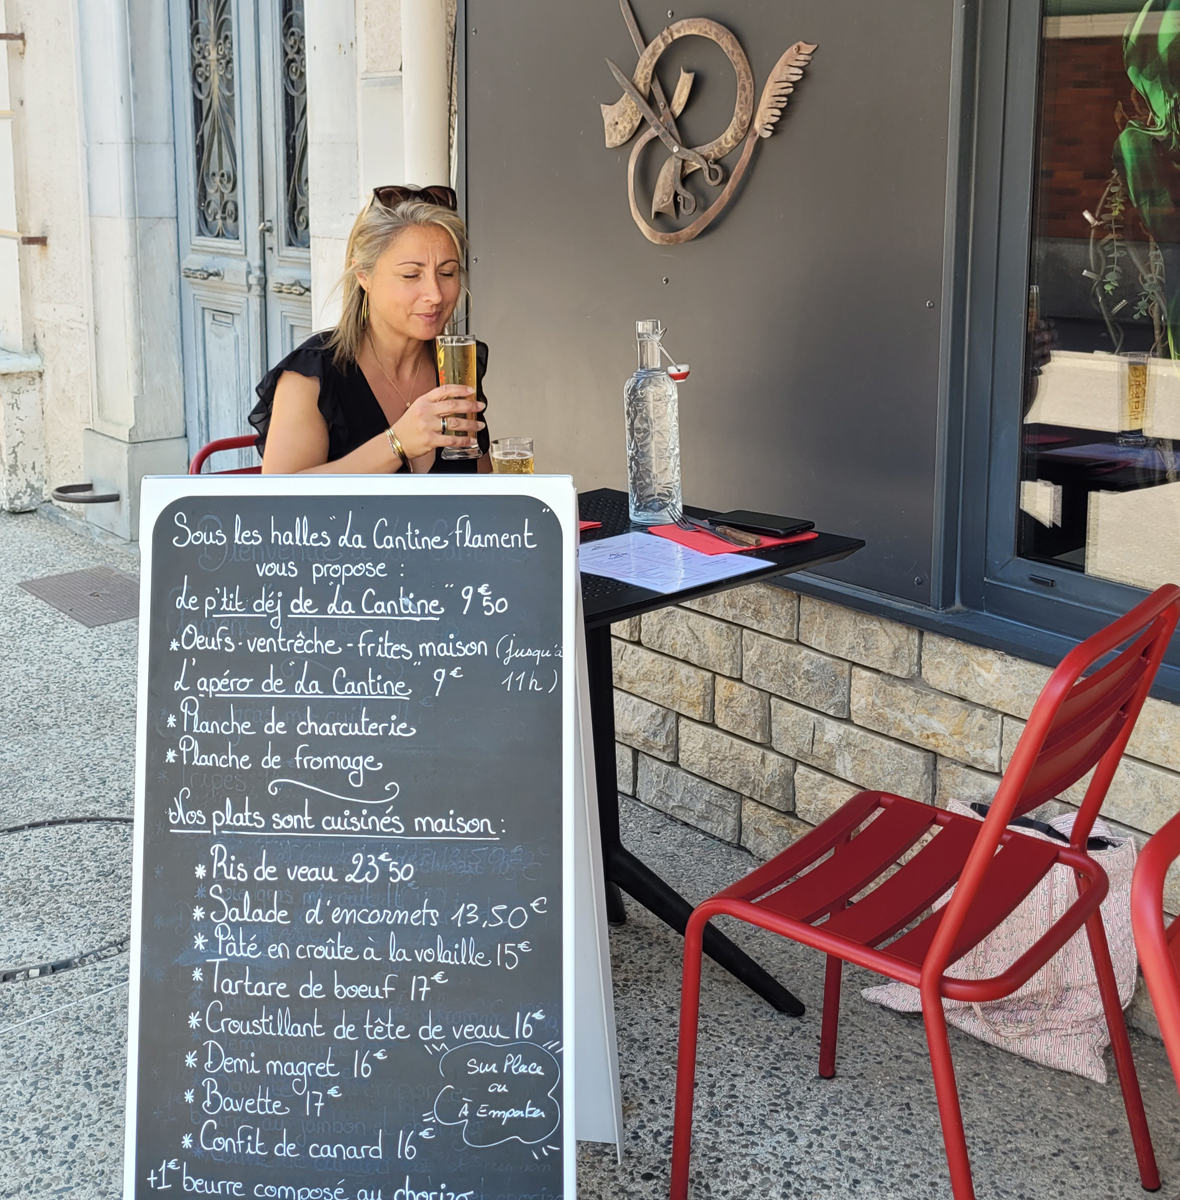 Sous les halles "La Cantine flament"
vous propose :
Le p'tit déj de "La Cantine" 9€50
*Oeufs-ventrêche-frites maison (jusqu'à
11h)
L'apéro de "La Cantine" 9€
*Planche de charcuterie
*Planche de fromage
Nos plats sont cuisinés maison :
*Ris de veau 23€50
*Salade d'encornets 13,50€
*Pâté en croûte à la volaille 15€
*Tartare de boeuf 17€
*Croustillant de tête de veau 16€
*Demi magret 16€
*Bavette 17€
*Confit de canard 16€
Sur Place
ou
À Emporter
+1€ beurre composé au chorizo